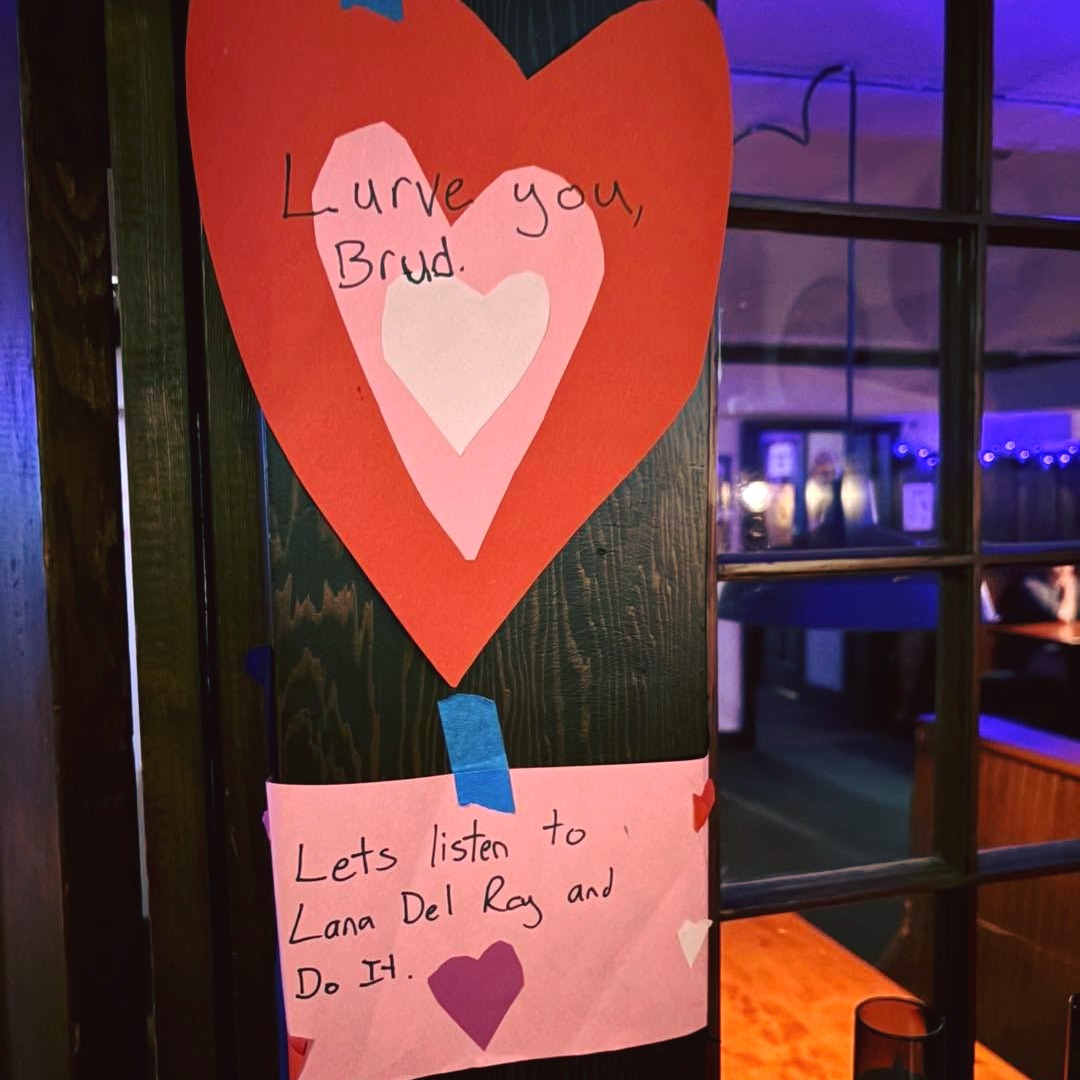 Lurve you,
Brud.
Lets listen to
Lana Del Ray and
Do It.